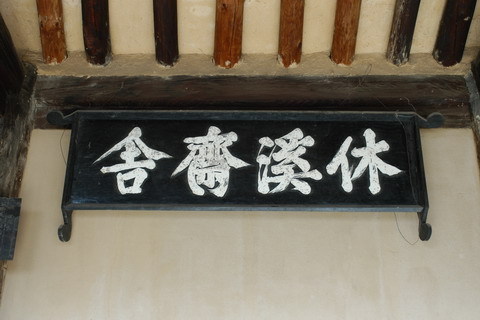 休溪齋舍